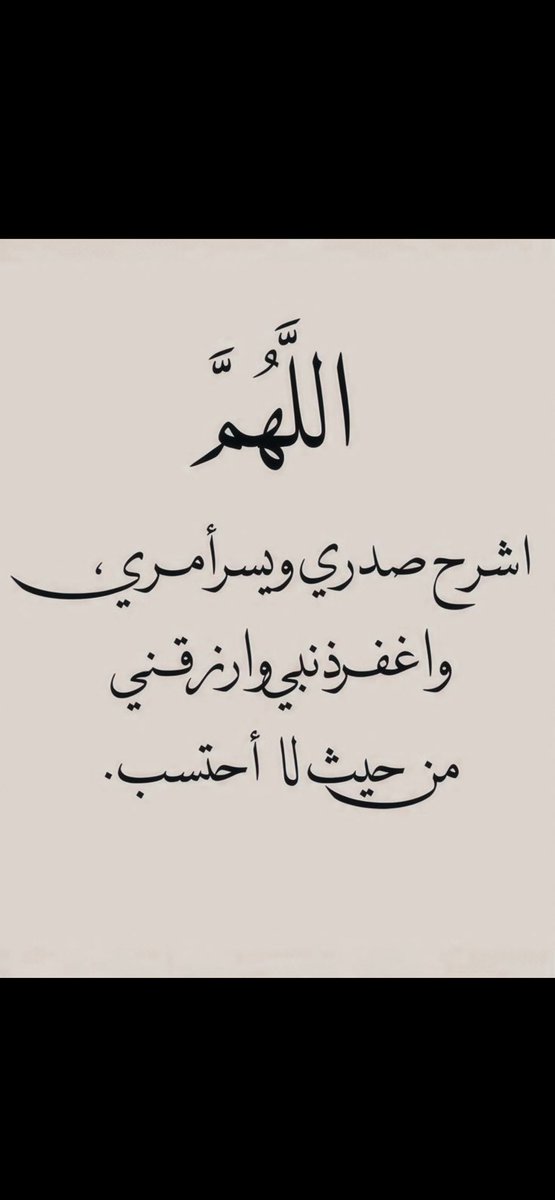 اللَّهُمَّ
اشرح صدري ويسر أمري،
واغفر ذنبي وارزقني
من حيث لا أحتسب.